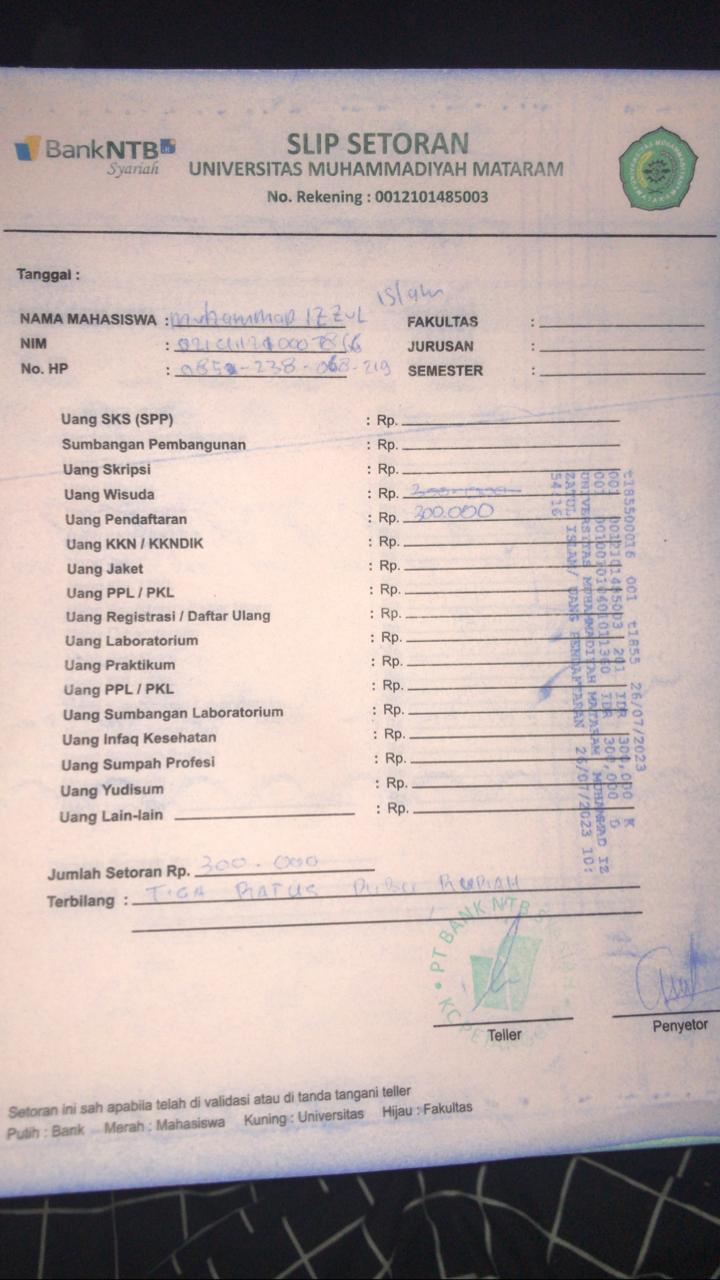 BankNTB
Syariah
SLIP SETORAN
UNIVERSITAS MUHAMMADIYAH MATARAM
No. Rekening : 0012101485003
Tanggal :
islam
NAMA MAHASISWA : muhammad IZZUL
NIM :
No. HP :
FAKULTAS :
JURUSAN :
SEMESTER :
Uang SKS (SPP) : Rp.
Sumbangan Pembangunan : Rp.
Uang Skripsi : Rp.
Uang Wisuda : Rp. 300.000
Uang Pendaftaran : Rp. 300.000
Uang KKN / KKNDIK : Rp.
Uang Jaket : Rp.
Uang PPL / PKL : Rp.
Uang Registrasi / Daftar Ulang : Rp.
Uang Laboratorium : Rp.
Uang Praktikum : Rp.
Uang PPL / PKL : Rp.
Uang Sumbangan Laboratorium : Rp.
Uang Infaq Kesehatan : Rp.
Uang Sumpah Profesi : Rp.
Uang Yudisum : Rp.
Uang Lain-lain : Rp.
t185500016 001 t1855 26/07/2023
001 0012101485003 201 IDR 300,000 K
001 IDR 300,000 D
UNIVERSITAS MUHAMMADIYAH MATARAM MUHAMMAD IZ
ZATUL ISLAM/ UANG PENDAFTARAN 26/07/2023 10:
54:16
Jumlah Setoran Rp. 300.000
Terbilang : TIGA RATUS RIBU RUPIAH
PT BANK NTB
Teller
Penyetor
Setoran ini sah apabila telah di validasi atau di tanda tangani teller
Putih : Bank Merah : Mahasiswa Kuning : Universitas Hijau : Fakultas